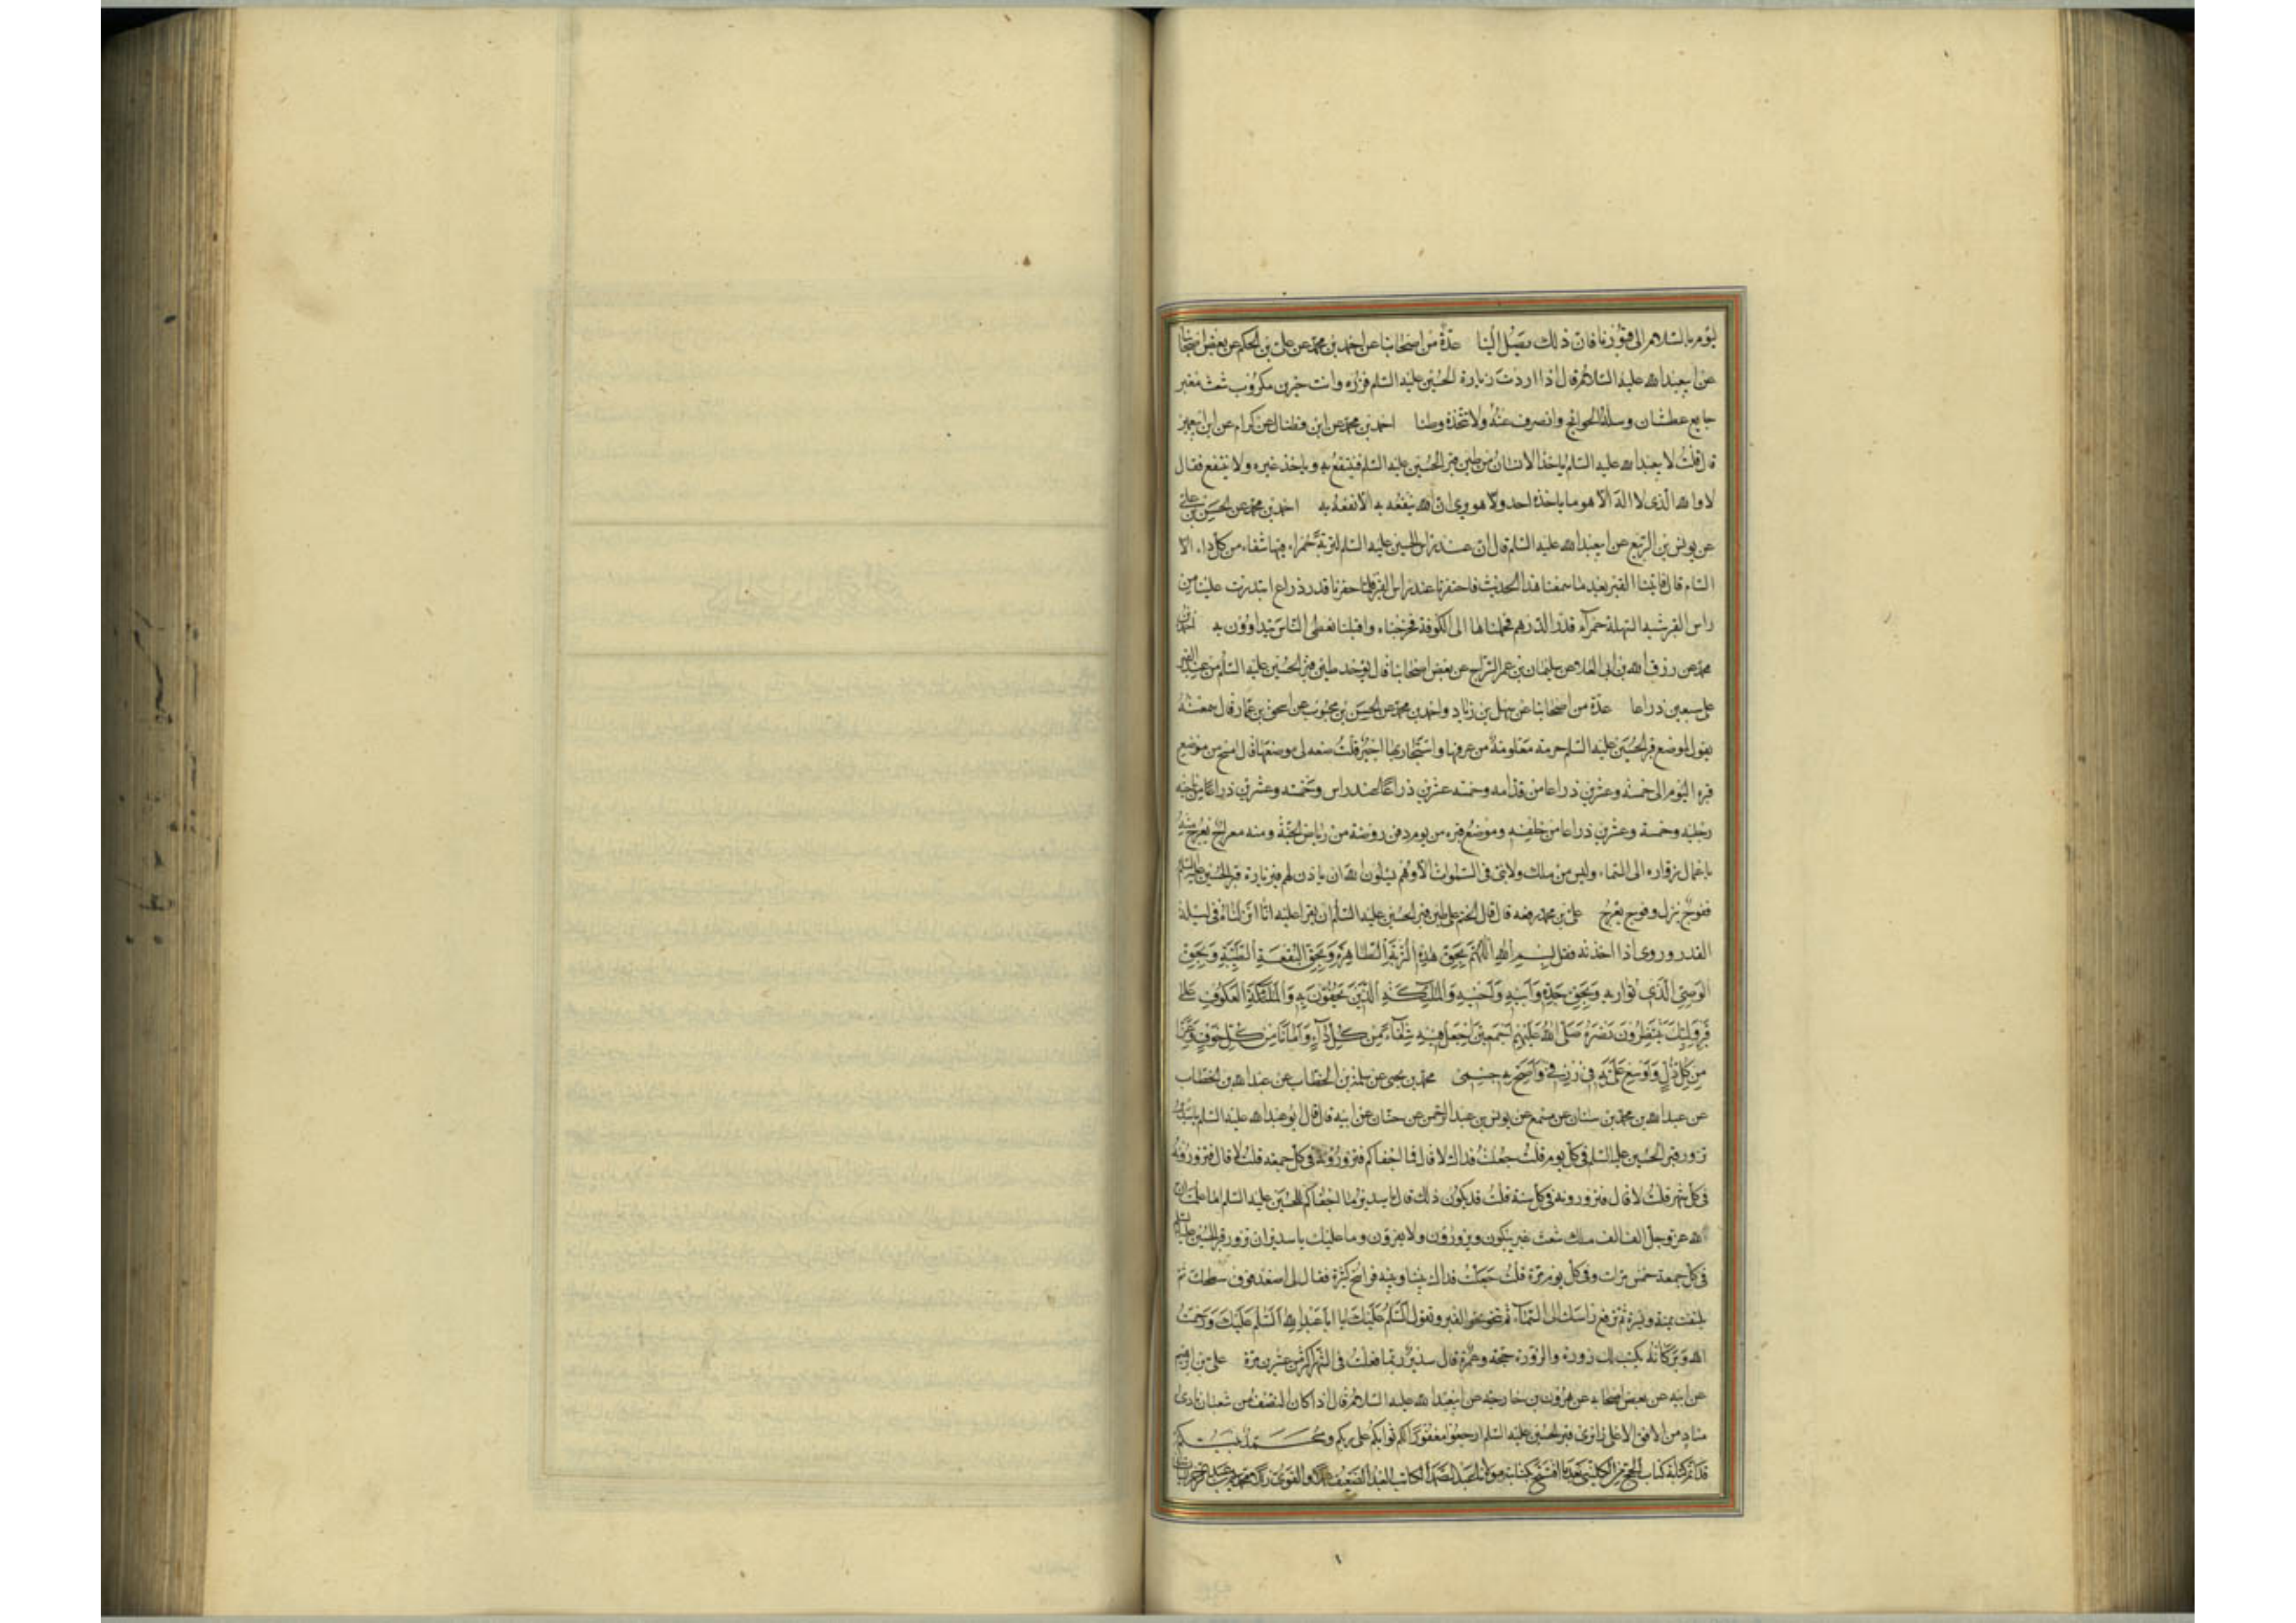 ليؤم بالسلام الى قبورنا فان ذلك يصل الينا عدة من اصحابنا عن احمد بن محمد عن علي بن الحكم عن بعض اصحابنا
عن ابيعبدالله عليه السلام قال اذا اردت زيارة الحسين عليه السلم فزره وانت حزين مكروب شعث مغبر
جايع عطشان وسله الحوائج وانصرف عنه ولا تتخذه وطنا احمد بن محمد عن ابن فضال عن كرام عن ابن ابي يعفور
قال قلت لابيعبدالله عليه السلم ياخذ الانسان من طين قبر الحسين عليه السلم فينتفع به وياخذ غيره ولا ينتفع فقال
لا والله الذي لا اله الا هو ما ياخذه احد وهو يرى ان الله ينفعه به الا نفعه به احمد بن محمد عن الحسن بن علي
عن يونس بن الربيع عن ابيعبدالله عليه السلم قال ان عند راس الحسين عليه السلم لتربة حمراء فيها شفاء من كل داء الا
السام قال فاتينا القبر بعد ما سمعنا هذا الحديث فاحتفرنا عند راس القبر فلما حفرنا قدر ذراع ابتدرت علينا من
راس القبر شبه السهلة حمراء قدر الدرهم فحملناها الى الكوفة فمزجناه واقبلنا نعطي الناس يتداوون به احمد بن
محمد عن رزق الله بن ابي العلا عن سليمان بن عمر السراج عن بعض اصحابنا قال يؤخذ طين قبر الحسين عليه السلم من عند القبر
على سبعين ذراعا عدة من اصحابنا عن سهل بن زياد واحمد بن محمد عن الحسن بن محبوب عن اسحق بن عمار قال سمعته
يقول لموضع قبر الحسين عليه السلم حرمة معلومة من عرفها واستجار بها اجير قلت صفه لي موضعها قال امسح من موضع
قبره اليوم الى خمسة وعشرين ذراعا من قدامه وخمسة عشرين ذراعا عند راسه وخمسة وعشرين ذراعا من ناحية
رجليه وخمسة وعشرين ذراعا من خلفه وموضع قبره من يوم دفن روضة من رياض الجنة ومنه معراج يعرج منه
باعمال زواره الى السماء وليس من ملك ولا نبي في السموات الا وهم يسئلون الله ان ياذن لهم في زيارة قبر الحسين عليه السلم
ففوج ينزل وفوج يعرج علي بن محمد رفعه قال قال الختم على طين قبر الحسين عليه السلم ان يقرا عليه انا انزلناه في ليلة
القدر وروى اذا اخذته فقل بسم الله اللهم بحق هذه التربة الطاهرة وبحق البقعة الطيبة وبحق
الوصي الذي تواريه وبحق جده وابيه وامه واخيه والملئكة الذين يحفون به والملئكة العكوف على
قبر وليك ينتظرون نصره صلى الله عليهم اجمعين اجعل لي فيه شفاء من كل داء وامانا من كل خوف وعزا
من كل ذل واوسع علي به في رزقي واصح به جسمي محمد بن يحيى عن سلمة بن الخطاب عن عبد الله بن الخطاب
عن عبد الله بن محمد بن سنان عن مسمع عن يونس بن عبد الرحمن عن حنان عن ابيه قال قال ابو عبد الله عليه السلم يا سدير
تزور قبر الحسين عليه السلم في كل يوم قلت جعلت فداك لا قال فما اجفاكم فتزورونه في كل جمعة قلت لا قال فتزورونه
في كل شهر قلت لا قال فتزورونه في كل سنة قلت قد يكون ذلك قال يا سدير ما اجفاكم للحسين عليه السلم اما علمت ان
لله عز وجل الف الف ملك شعث غبر يبكون ويزورون ولا يفترون وما عليك يا سدير ان تزور قبر الحسين عليه السلم
في كل جمعة خمس مرات وفي كل يوم مرة قلت جعلت فداك بيننا وبينه فراسخ كثيرة فقال لي اصعد فوق سطحك ثم
تلتفت يمنة ويسرة ثم ترفع راسك الى السماء ثم تنحو نحو القبر وتقول السلم عليك يا ابا عبد الله السلم عليك ورحمة
الله وبركاته يكتب لك زورة والزورة حجة وعمرة قال سدير ربما فعلت في الشهر اكثر من عشرين مرة علي بن ابرهيم
عن ابيه عن بعض اصحابه عن هرون بن خارجة عن ابيعبدالله عليه السلام قال اذا كان النصف من شعبان نادى
مناد من الافق الاعلى زائري قبر الحسين عليه السلم ارجعوا مغفورا لكم ثوابكم على ربكم ومحمد نبيكم
قد تم كتابة كتاب الحج من الكليني بعد ما افتتح كتابته مولانا عبد الصمد الكاتب العبد الضعيف